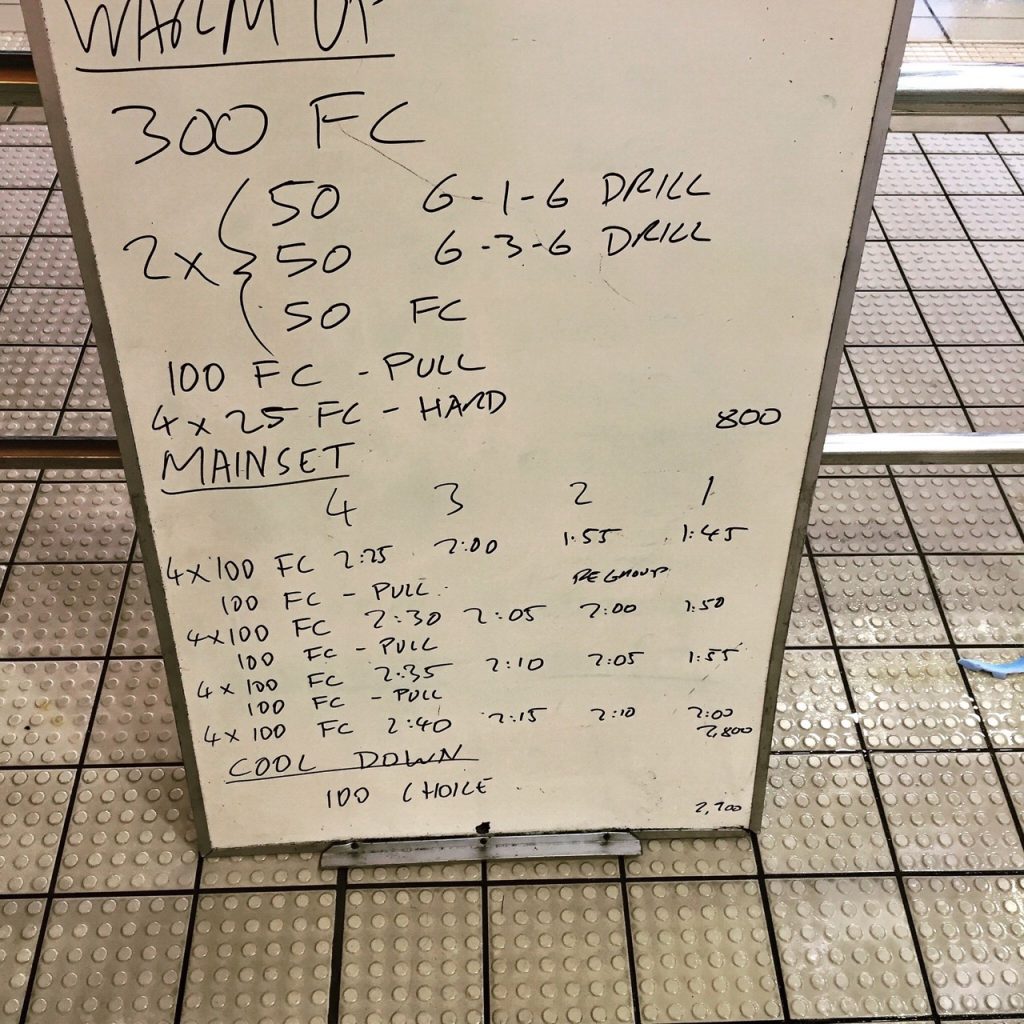 WARM UP
300 FC
2x { 50 6-1-6 DRILL
50 6-3-6 DRILL
50 FC
100 FC - PULL
4 x 25 FC - HARD
800
MAINSET
4 3 2 1
4x100 FC 2:25 2:00 1:55 1:45
100 FC - PULL REGROUP
4x100 FC 2:30 2:05 2:00 1:50
100 FC - PULL
4 x 100 FC 2:35 2:10 2:05 1:55
100 FC - PULL
4 x 100 FC 2:40 2:15 2:10 2:00
2,800
COOL DOWN
100 CHOICE
2,900